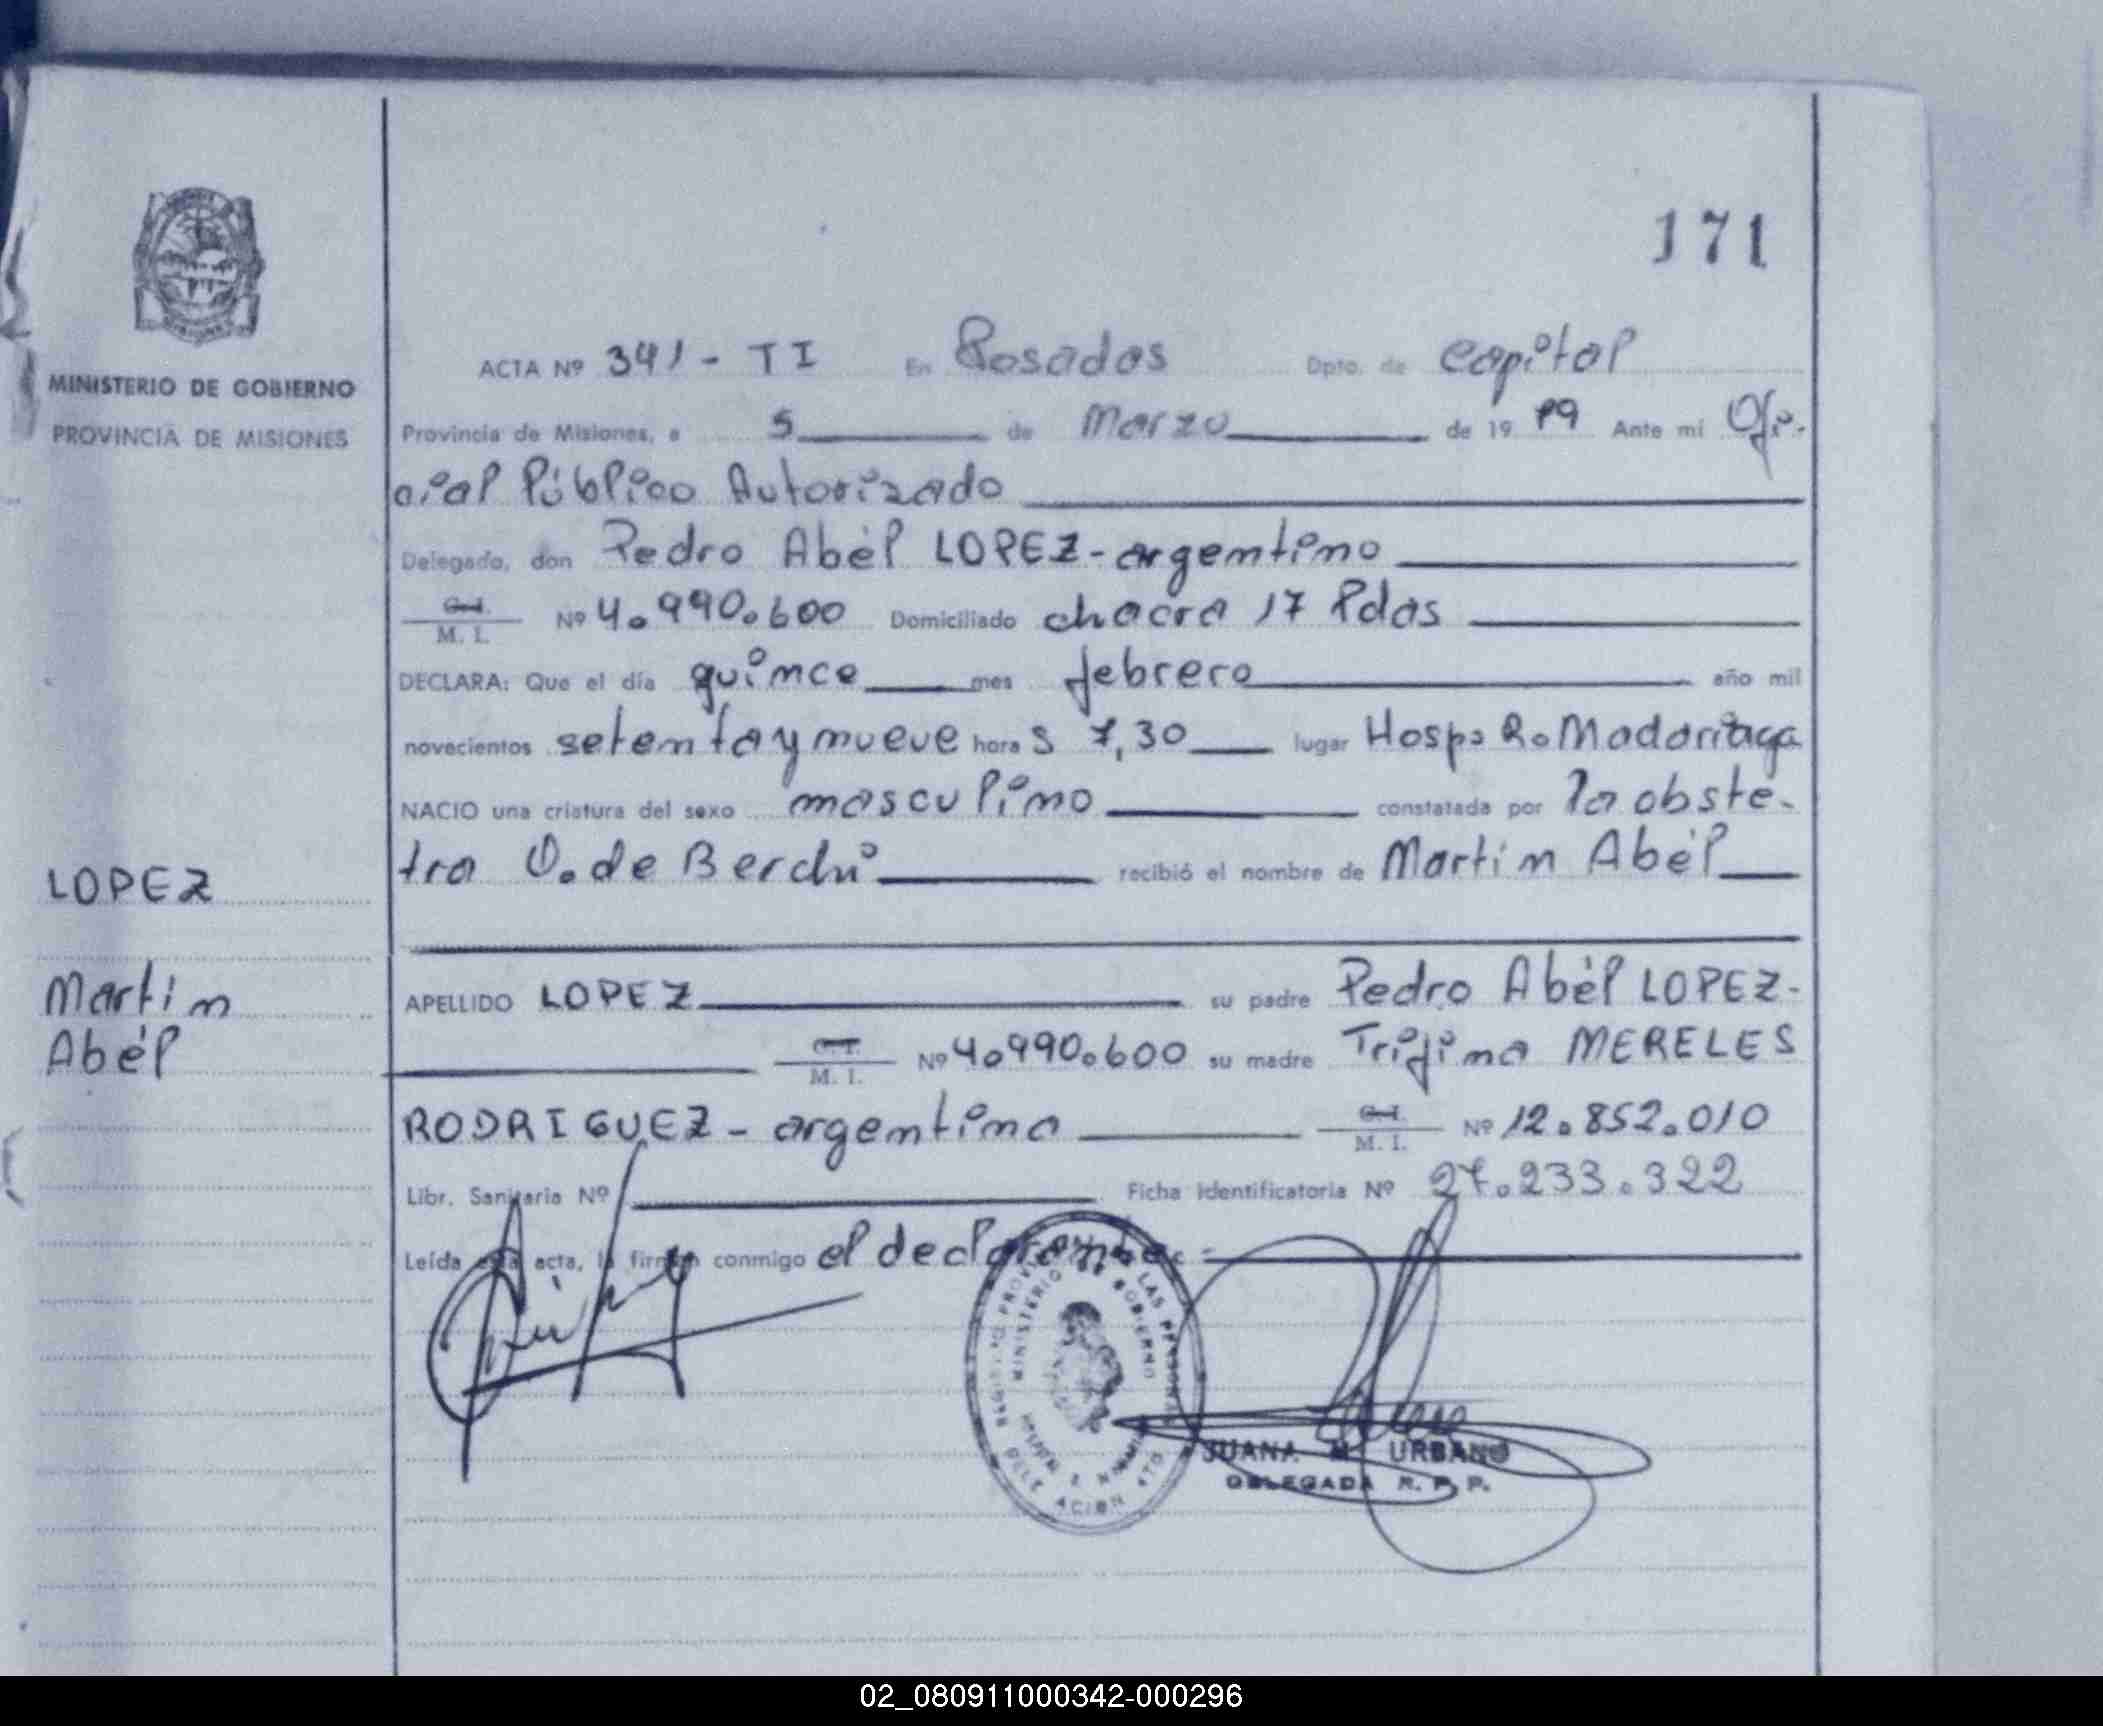 171
MINISTERIO DE GOBIERNO
PROVINCIA DE MISIONES
ACTA Nº 341 - TI En Posadas Dpto. de Capital
Provincia de Misiones, a 5 de Marzo de 19 79 Ante mi Ofi-
cial Público Autorizado
Delegado, don Pedro Abél LOPEZ - argentino
C.I. M. I. Nº 4.990.600 Domiciliado chacra 17 Pdas
DECLARA: Que el día quince mes febrero año mil
novecientos setenta y nueve hora s 7,30 lugar Hosp. R. Madariaga
NACIO una criatura del sexo masculino constatada por la obste-
tra O. de Berchi recibió el nombre de Martin Abél
LOPEZ
Martin
Abél
APELLIDO LOPEZ su padre Pedro Abél LOPEZ-
C.I. M. I. Nº 4.990.600 su madre Trifina MERELES
RODRIGUEZ - argentina C.I. M. I. Nº 12.852.010
Libr. Sanitaria Nº Ficha Identificatoria Nº 27.233.322
Leída esta acta, la firman conmigo el declarante.=
MINISTERIO DE GOBIERNO
JUANA M. URBANO
DELEGADA R. P. P.
02_080911000342-000296